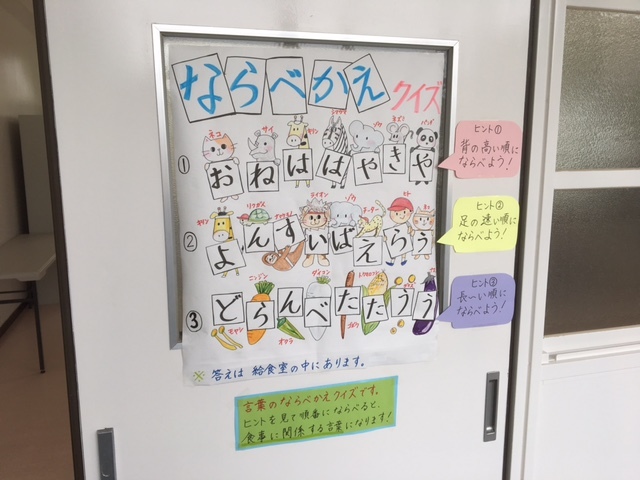 ならべかえ クイズ
ネコ サイ キリン シマウマ ゾウ ネズミ パンダ
① おねははやきや
ヒント①
背の高い順に
ならべよう!
キリン リクガメ ナマケモノ ライオン ゾウ チーター ヒト ネコ
② よんすいばえらう
ヒント②
足の速い順に
ならべよう!
ニンジン ダイコン
③ どらんべたたうう
モヤシ オクラ ゴボウ
ヒント③
長〜い順に
ならべよう!
※ 答えは 給食室の中にあります。
言葉のならべかえクイズです。
ヒントを見て順番にならべると、
食事に関係する言葉になります!